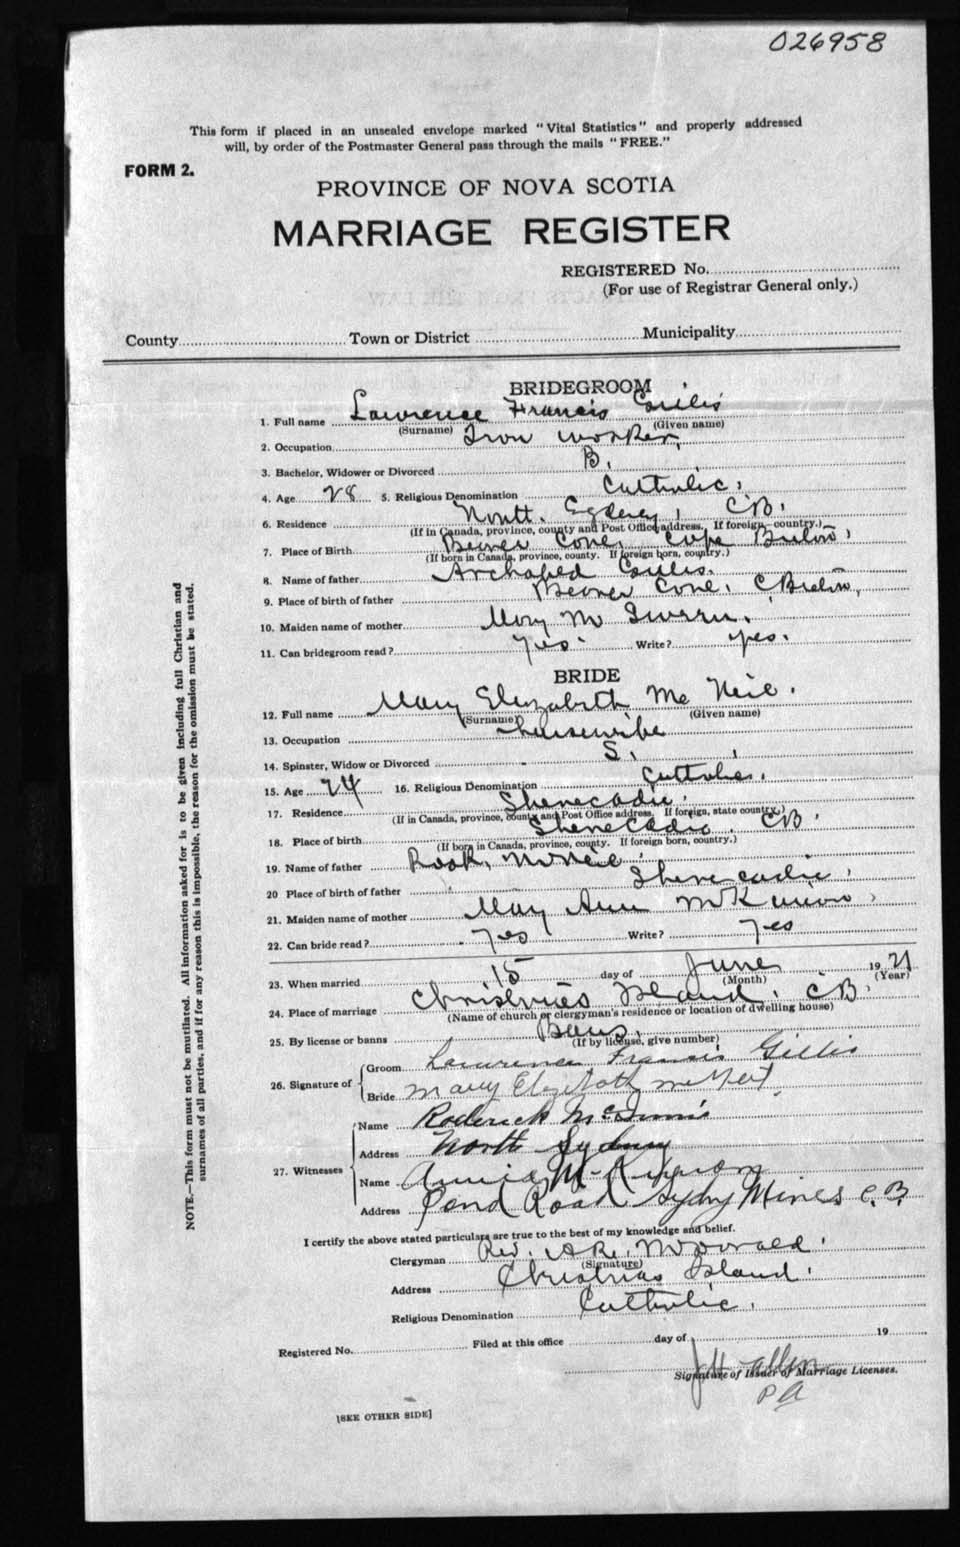 026958
This form if placed in an unsealed envelope marked "Vital Statistics" and properly addressed
will, by order of the Postmaster General pass through the mails "FREE."
FORM 2.
PROVINCE OF NOVA SCOTIA
MARRIAGE REGISTER
REGISTERED No.
(For use of Registrar General only.)
County Town or District Municipality
BRIDEGROOM
1. Full name Lawrence Francis Gillis
(Surname) (Given name)
2. Occupation Iron worker,
3. Bachelor, Widower or Divorced B.
4. Age 28 5. Religious Denomination Catholic.
6. Residence North Sydney, CB.
(If in Canada, province, county and Post Office address. If foreign—country.)
7. Place of Birth Beaver Cove, Cape Breton,
(If born in Canada, province, county. If foreign born, country.)
8. Name of father Gillis.
9. Place of birth of father Beaver Cove, C Breton,
10. Maiden name of mother Mary
11. Can bridegroom read? Yes. Write? yes.
BRIDE
12. Full name Mary Elizabeth McNeil.
(Surname) (Given name)
13. Occupation housewife
14. Spinster, Widow or Divorced S.
15. Age 24 16. Religious Denomination Catholic.
17. Residence Shenecadie.
(If in Canada, province, county and Post Office address. If foreign, state country.)
18. Place of birth Shenecadie. CB.
(If born in Canada, province, county. If foreign born, country.)
19. Name of father McNeil
20 Place of birth of father Shenecadie,
21. Maiden name of mother Mary Ann McKinnon,
22. Can bride read? Yes Write? Yes
23. When married 15 day of June 1921
(Month) (Year)
24. Place of marriage Christmas Island. CB.
(Name of church or clergyman's residence or location of dwelling house)
25. By license or banns Banns.
(If by license, give number)
26. Signature of
Groom Lawrence Francis Gillis
Bride Mary Elizabeth McNeil
27. Witnesses
Name Roderick McInnis
Address North Sydney
Name Annie McKinnon
Address Pond Road Sydny Mines C.B.
I certify the above stated particulars are true to the best of my knowledge and belief.
Clergyman Rev. A.R. McDonald.
(Signature)
Address Christmas Island.
Religious Denomination Catholic.
Registered No. Filed at this office day of 19
Allen
Signature of Issuer of Marriage Licenses.
P A
[SEE OTHER SIDE]
NOTE.—This form must not be mutilated. All information asked for is to be given including full Christian and
surnames of all parties, and if for any reason this is impossible, the reason for the omission must be stated.